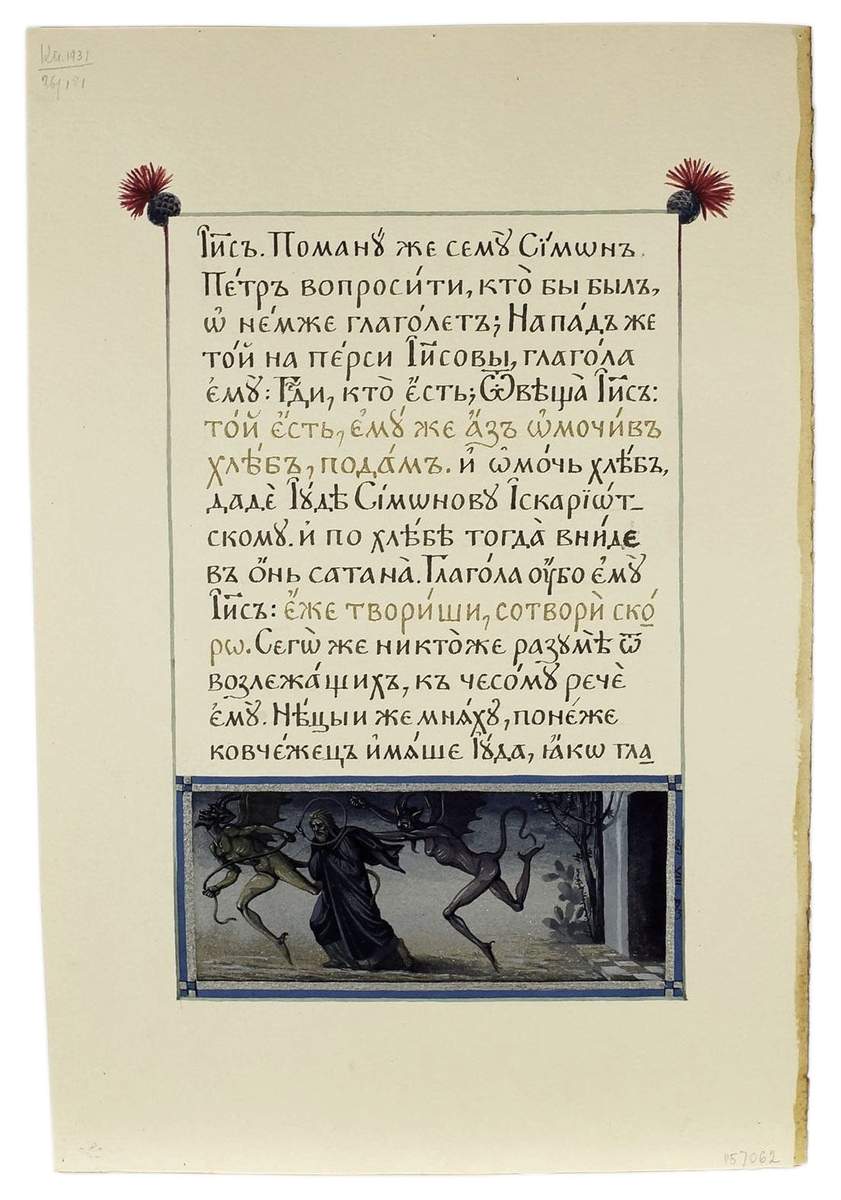 Кп.1931
І҆и҃съ. Поману́ же сему̀ Сі́мѡнъ
Пе́тръ вопроси́ти, кто̀ бы былъ,
ѡ не́мже глаго́летъ; Напа́дъ же
то́й на пе́рси І҆и҃совы, глаго́ла
є҆му̀: Гдⷭ҇и, кто̀ є҆́сть; Ѿвѣща̀ І҆и҃съ:
то́й є҆́сть, є҆му́ же а҆́зъ ѡ҆мочи́въ
хлѣ́бъ, пода́мъ. и҆ ѡ҆мо́чь хлѣ́бъ,
дадѐ І҆ꙋ́дѣ Сі́мѡнову І҆скарїѡ́т-
скому. и҆ по хлѣ́бѣ тогда̀ вни́де
въ о҆́нь сатана̀. Глаго́ла оу҆́бо є҆му̀
І҆и҃съ: є҆́же твори́ши, сотворѝ ско́-
рѡ. Сегѡ̀ же никто̀же разумѣ̀ ѿ
возлежа́щихъ, къ чесо́му речѐ
є҆му̀. Нѣ́цыи же мнѧ́ху, поне́же
ковче́жецъ и҆мѧ́ше І҆ꙋ́да, ꙗ҆́кѡ гла
57062